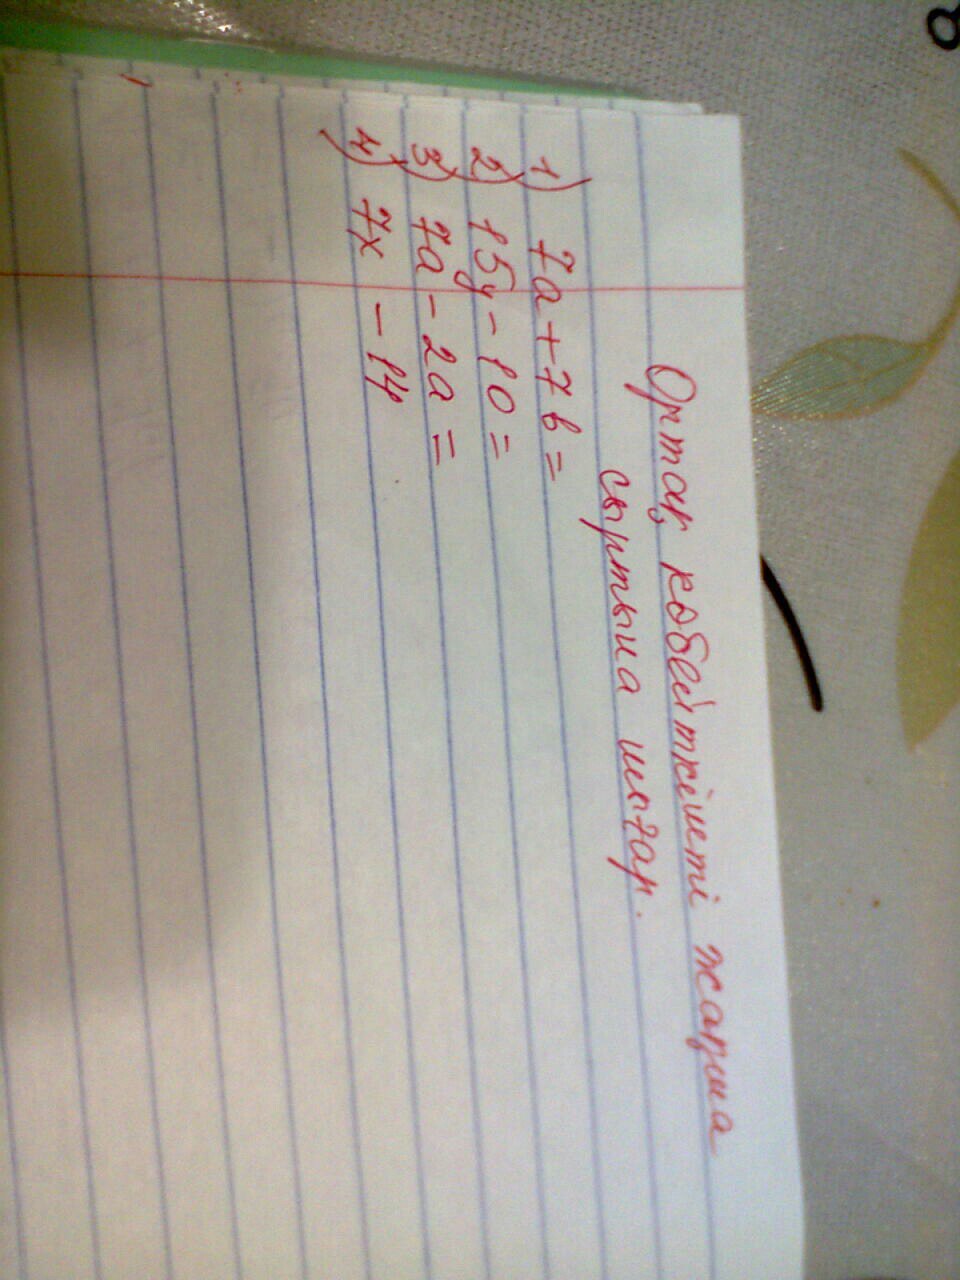 Ортақ көбейткішті жақша
сыртына шығар.
1) 7a + 7b =
2) 15y - 10 =
3) 7a - 2a =
4) 7x - 14